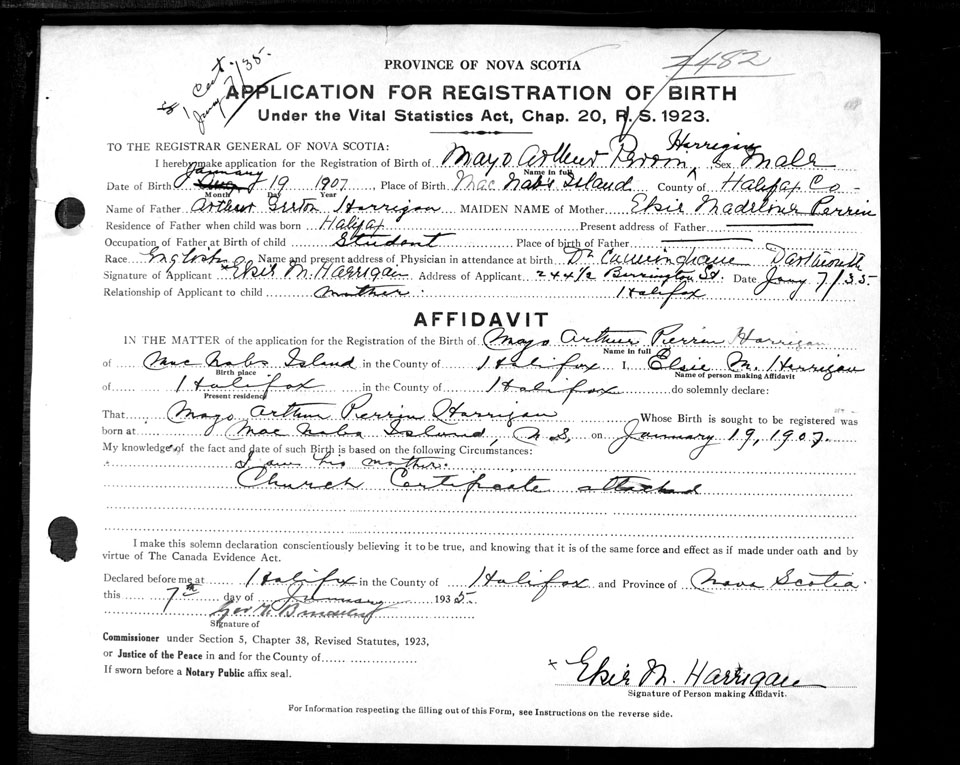 7482
$1 Cert.
Jany 7/35.
PROVINCE OF NOVA SCOTIA
APPLICATION FOR REGISTRATION OF BIRTH
Under the Vital Statistics Act, Chap. 20, R. S. 1923.
TO THE REGISTRAR GENERAL OF NOVA SCOTIA:
I hereby make application for the Registration of Birth of Mayo Arthur Perrin Harrigan, Sex Male
Name in full
Date of Birth January 19 1907, Place of Birth Mac Nabs Island County of Halifax Co
Month Day Year
Name of Father Arthur Harrigan MAIDEN NAME of Mother Elsie Madeline Perrin
Residence of Father when child was born Halifax Present address of Father
Occupation of Father at Birth of child Student Place of birth of Father
Race English Name and present address of Physician in attendance at birth Dr Cunningham Dartmouth
Signature of Applicant Elsie M. Harrigan Address of Applicant 244 1/2 Barrington St. Date Jany 7/35.
Relationship of Applicant to child mother. Halifax
AFFIDAVIT
IN THE MATTER of the application for the Registration of the Birth of Mayo Arthur Perrin Harrigan
Name in full
of Mac Nabs Island in the County of Halifax I, Elsie M. Harrigan
Birth place Name of person making Affidavit
of Halifax in the County of Halifax do solemnly declare:
Present residency
That Mayo Arthur Perrin Harrigan Whose Birth is sought to be registered was
born at Mac Nabs Island, N.S. on January 19, 1907.
My knowledge of the fact and date of such Birth is based on the following Circumstances:
I am his mother.
Church Certificate attached
I make this solemn declaration conscientiously believing it to be true, and knowing that it is of the same force and effect as if made under oath and by
virtue of The Canada Evidence Act.
Declared before me at Halifax in the County of Halifax and Province of Nova Scotia.
this 7th day of January 1935.
Signature of
Commissioner under Section 5, Chapter 38, Revised Statutes, 1923,
or Justice of the Peace in and for the County of
If sworn before a Notary Public affix seal.
x Elsie M. Harrigan
Signature of Person making Affidavit.
For Information respecting the filling out of this Form, see Instructions on the reverse side.